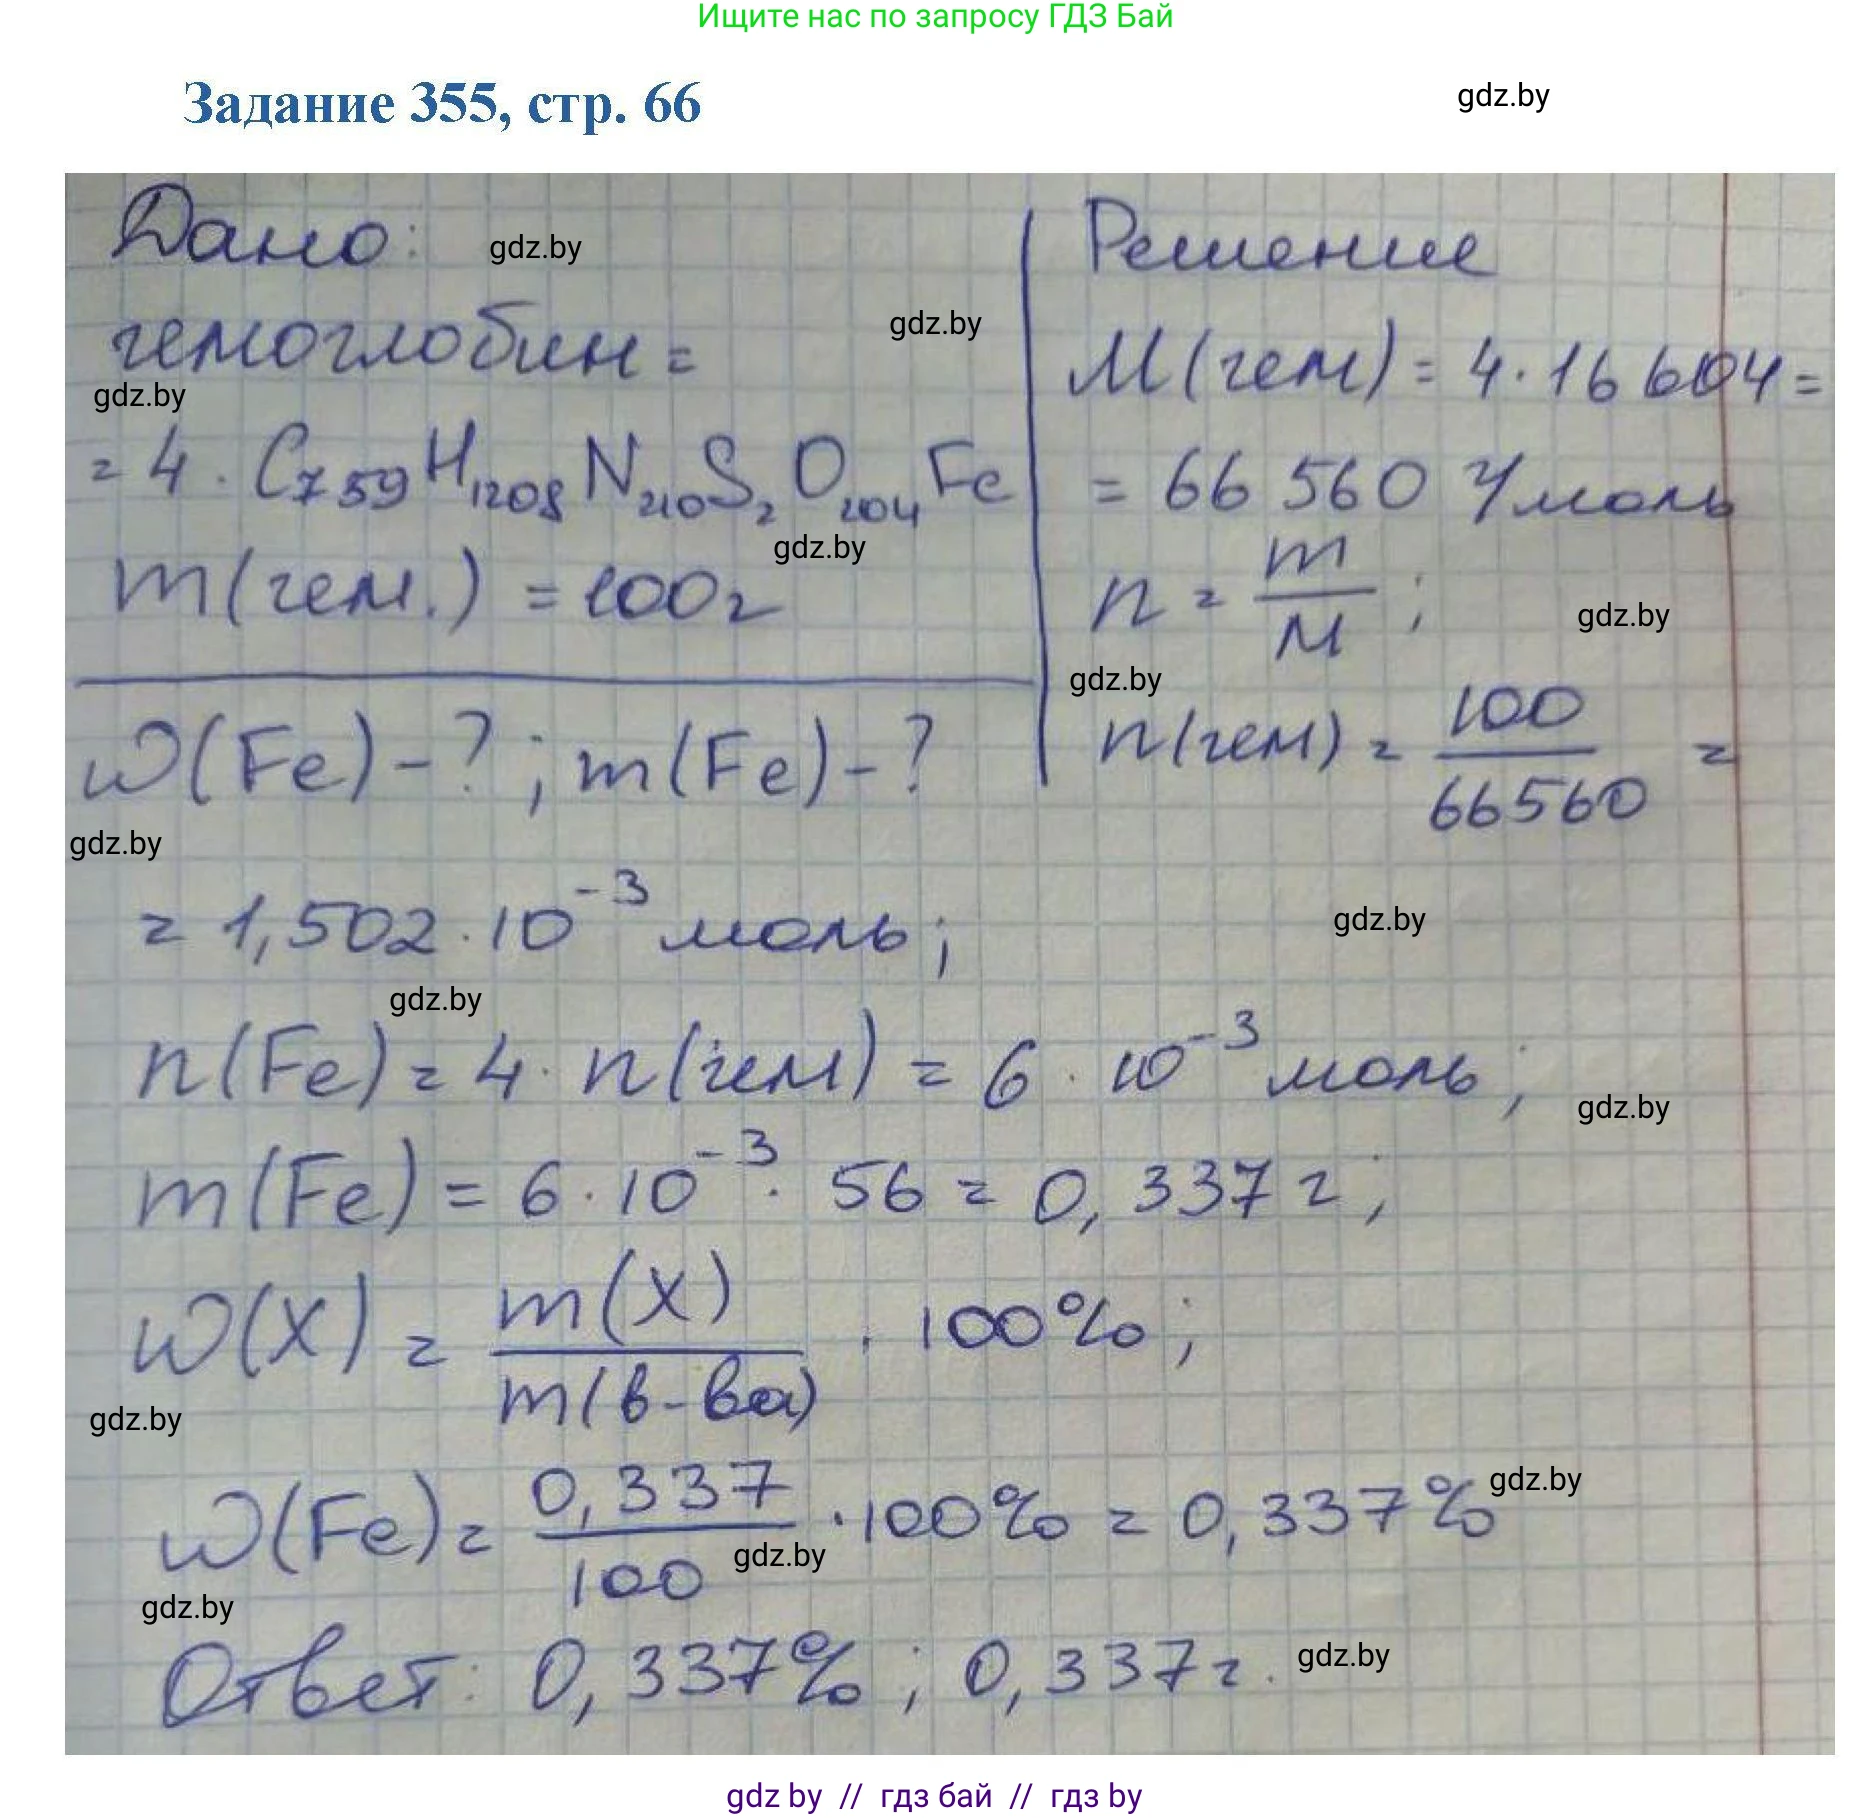 Ищите нас по запросу ГДЗ Бай
Задание 355, стр. 66
gdz.by
Дано:
gdz.by
гемоглобин =
gdz.by
= 4 · C₇₅₉H₁₂₀₈N₂₁₀S₂O₂₀₄Fe
gdz.by
m(гем.) = 100г
gdz.by
w(Fe)-? ; m(Fe)-?
gdz.by
Решение
M(гем) = 4·16604 =
= 66 560 г/моль
n = m/M ;
gdz.by
gdz.by
n(гем) = 100/66560 =
= 1,502·10⁻³ моль;
gdz.by
gdz.by
n(Fe) = 4· n(гем) = 6 · 10⁻³ моль;
gdz.by
m(Fe) = 6·10⁻³· 56 = 0,337г;
w(X) = m(X)/m(в-ва) · 100%;
gdz.by
w(Fe) = 0,337/100 ·100% = 0,337%
gdz.by
gdz.by
gdz.by
Ответ: 0,337%; 0,337г.
gdz.by
gdz by // гдз бай // гдз by